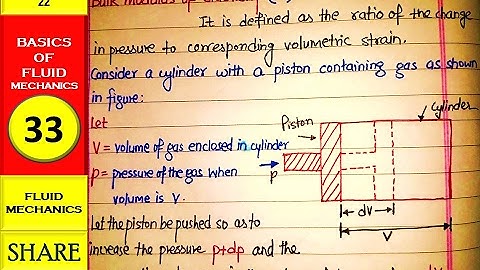 22
BASICS
OF
FLUID
MECHANICS
33
FLUID
MECHANICS
SHARE
It is defined as the ratio of the change
in pressure to corresponding volumetric strain.
Consider a cylinder with a piston containing gas as shown
in figure:
Let
V = volume of gas enclosed in cylinder
p = pressure of the gas when
volume is V.
Let the piston be pushed so as to
increase the pressure p+dp and the
Piston
Cylinder
P
dv
V